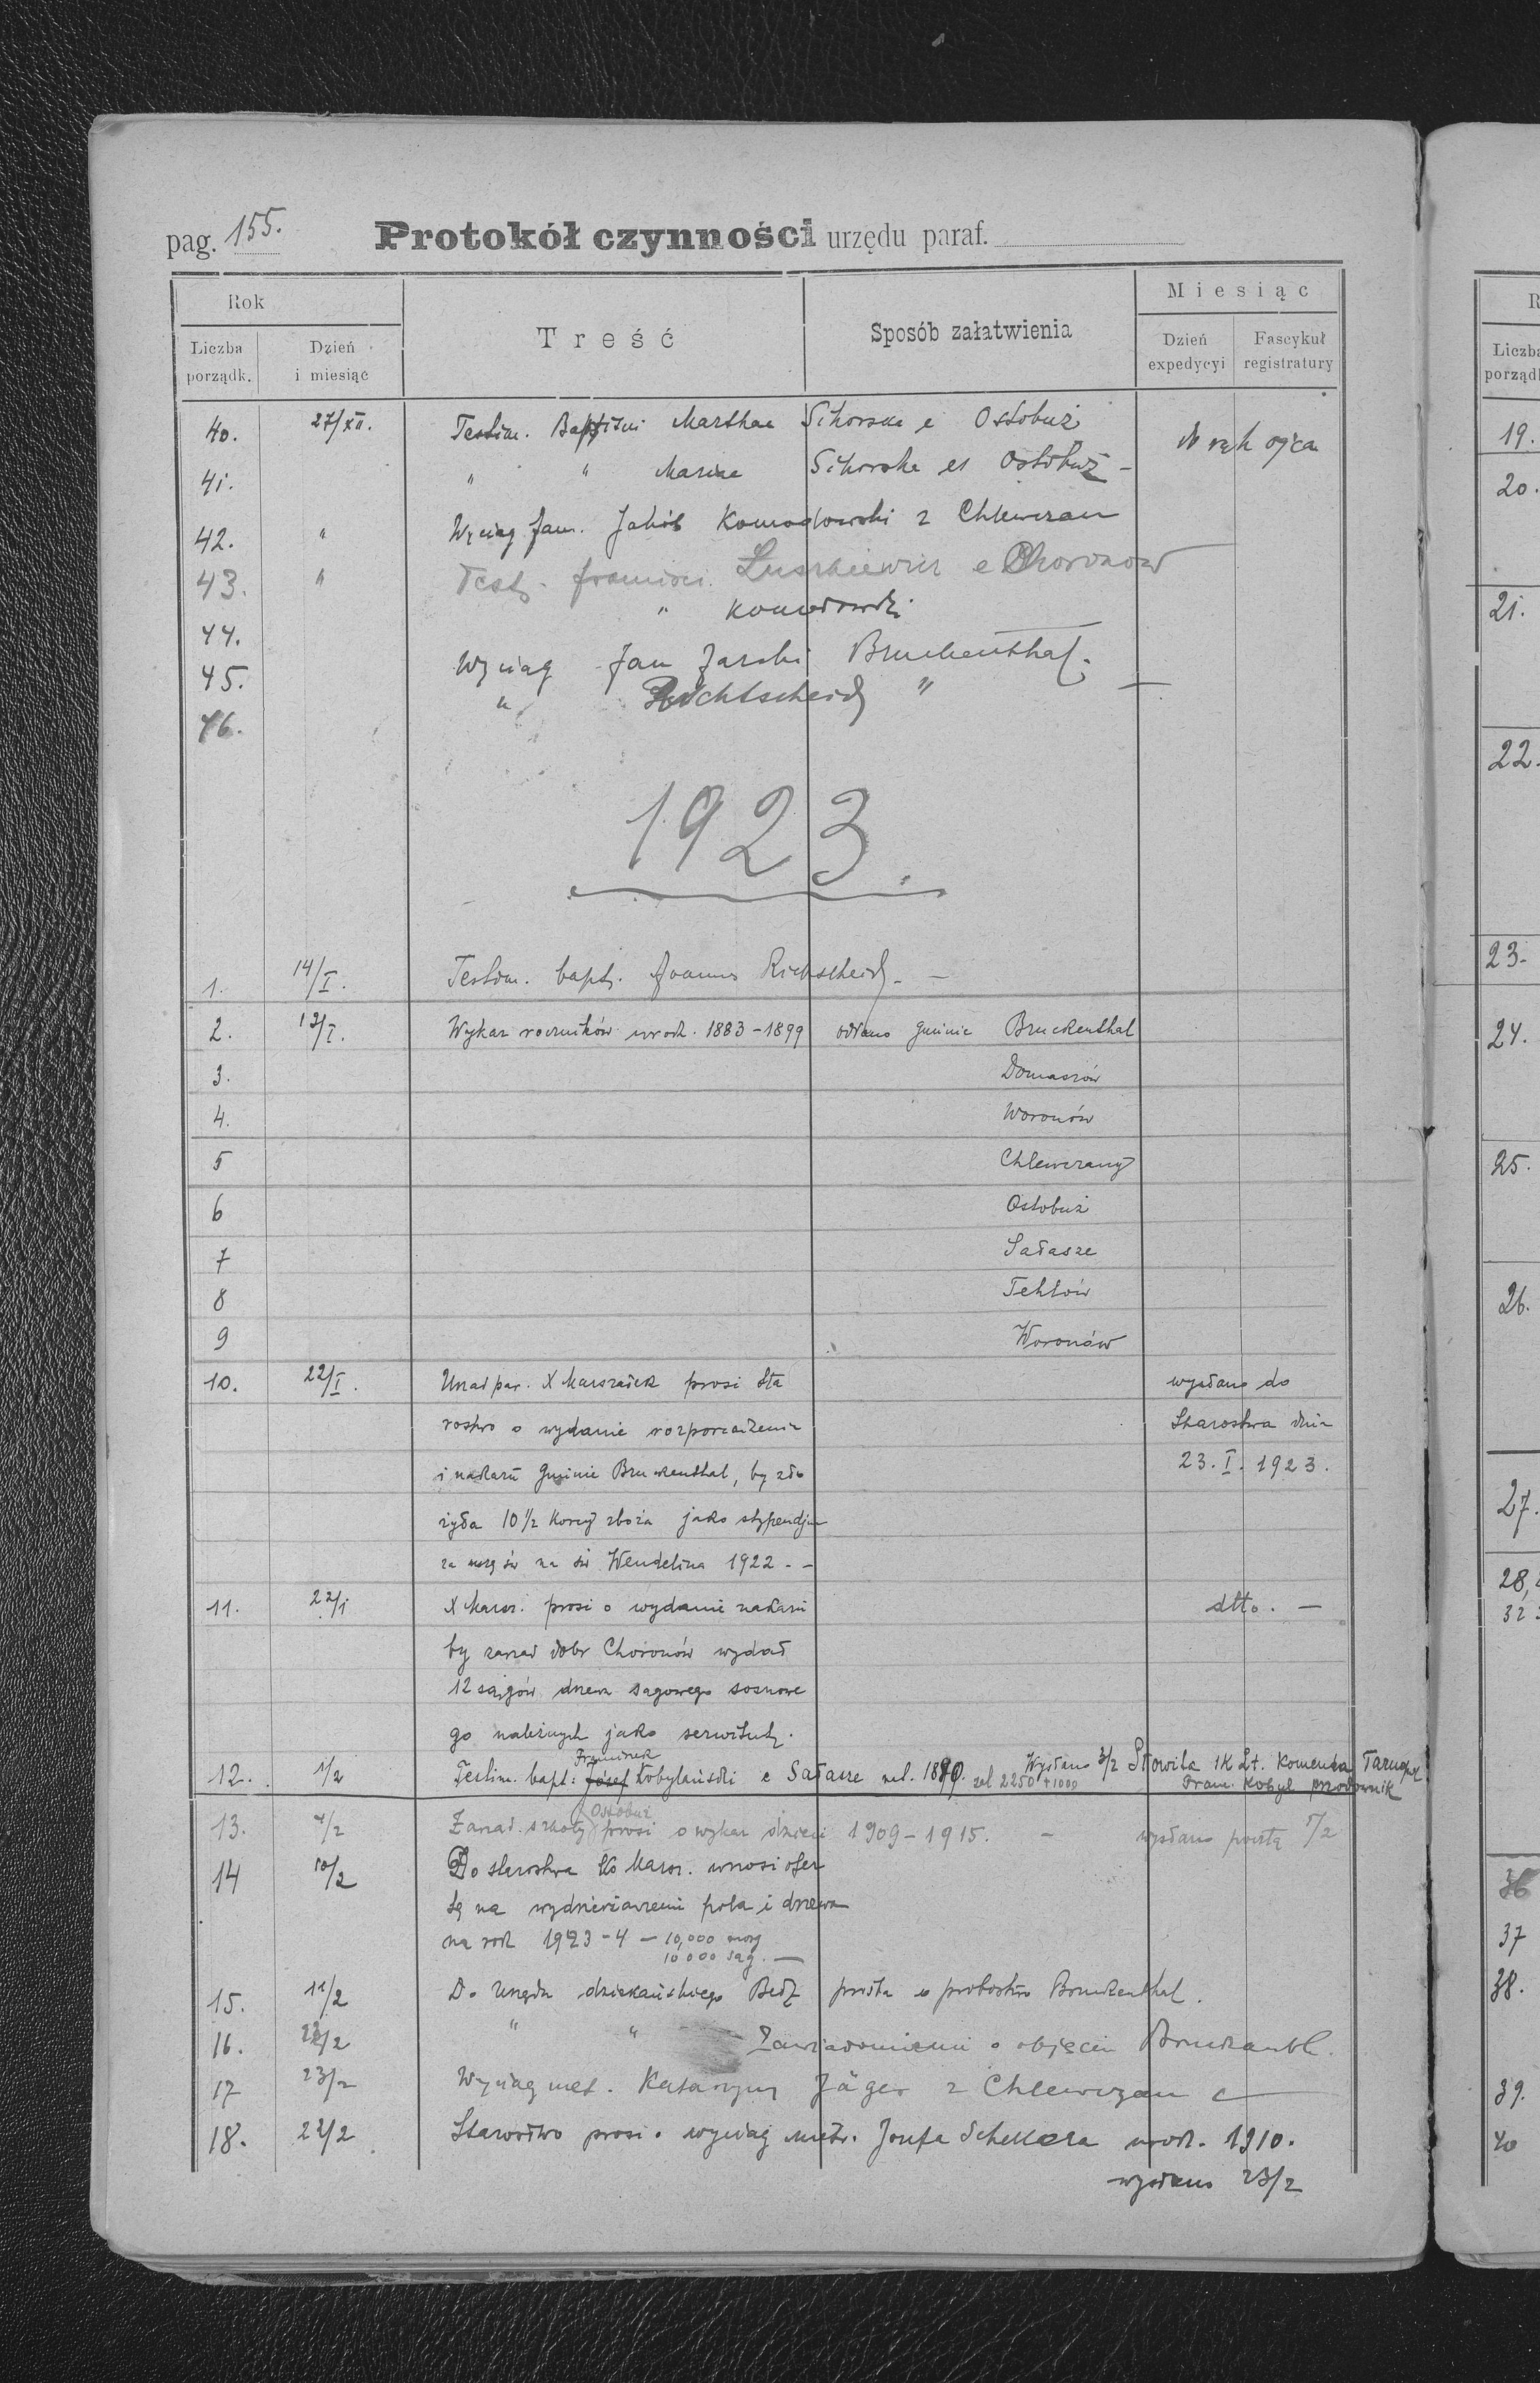 pag. 155. Protokół czynności urzędu paraf.
Rok Treść Sposób załatwienia Miesiąc
Liczba porządk. Dzień i miesiąc Dzień expedycyi Fascykuł registratury
40. 27/XII. Testim. Baptismi Marthae Sikorska e Ostobuż do rąk ojca
41. " " Mariae Sikorska ex Ostobuż -
42. " Wyciąg fam. Jakób Komadowski z Chlewczan
43. " Test. Luszkiewicz e Choronow
44. " Komadowski
45. Wyciąg Jan Jarski Bruckenthal.
46. " "
1923.
1. 14/I. Testim. bapt. Joannes Richscheid -
2. 13/I. Wykaz roczników urodz. 1883-1899 odesłano gminie Bruckenthal
3. Domaszów
4. Woronów
5 Chlewczany
6 Ostobuż
7 Sałasze
8 Tehlów
9 Woronów
10. 22/I. Urząd par. X Marszałek prosi Sta wysłano do
rostwo o wydanie rozporządzenia Starostwa dnia
i nakazu gminie Bruckenthal, by zło 23. I. 1923.
żyła 10 1/2 korcy zboża jako stypendjum
za mszę św na św Wendelina 1922 - -
11. 22/1 X Marsz. prosi o wydanie nakazu dtto. -
by zarząd dóbr Choronów wydał
12 sągów drzewa sągowego sosnowe
go należnych jako serwituty.
12. 1/2 Testim. bapt: Józef Franciszek Kobylański e Sałasze nat. 1890. zał 2250 + 1000 Wysłano 3/2 1K St. Komenda
Kobyl przodownik
13. 4/2 Zarząd szkoły Ostobuż prosi o wykaz dzieci 1909-1915. - wysłano pocztą 5/2
14 10/2 Do starostwa Ks Marsz. wnosi ofer
tę na wydzierżawienie pola i drzewa
na rok 1923-4 - 10,000 morg
10 000 sąg. -
15. 11/2 Do Urzędu dziekańskiego Bełz prośba o probostwo Bruckenthal.
16. 22/2 " " Zawiadomienie o objęciu Bruckenthl.
17 23/2 Wyciąg met. Katarzyny Jäger z Chlewczan
18. 22/2 Starostwo prosi o wyciąg metr. Józefa Schekera urodz. 1910.
wysłano 23/2
19.
20.
21.
22.
23.
24.
25.
26.
27.
28,
32
36
37
38.
39.
40